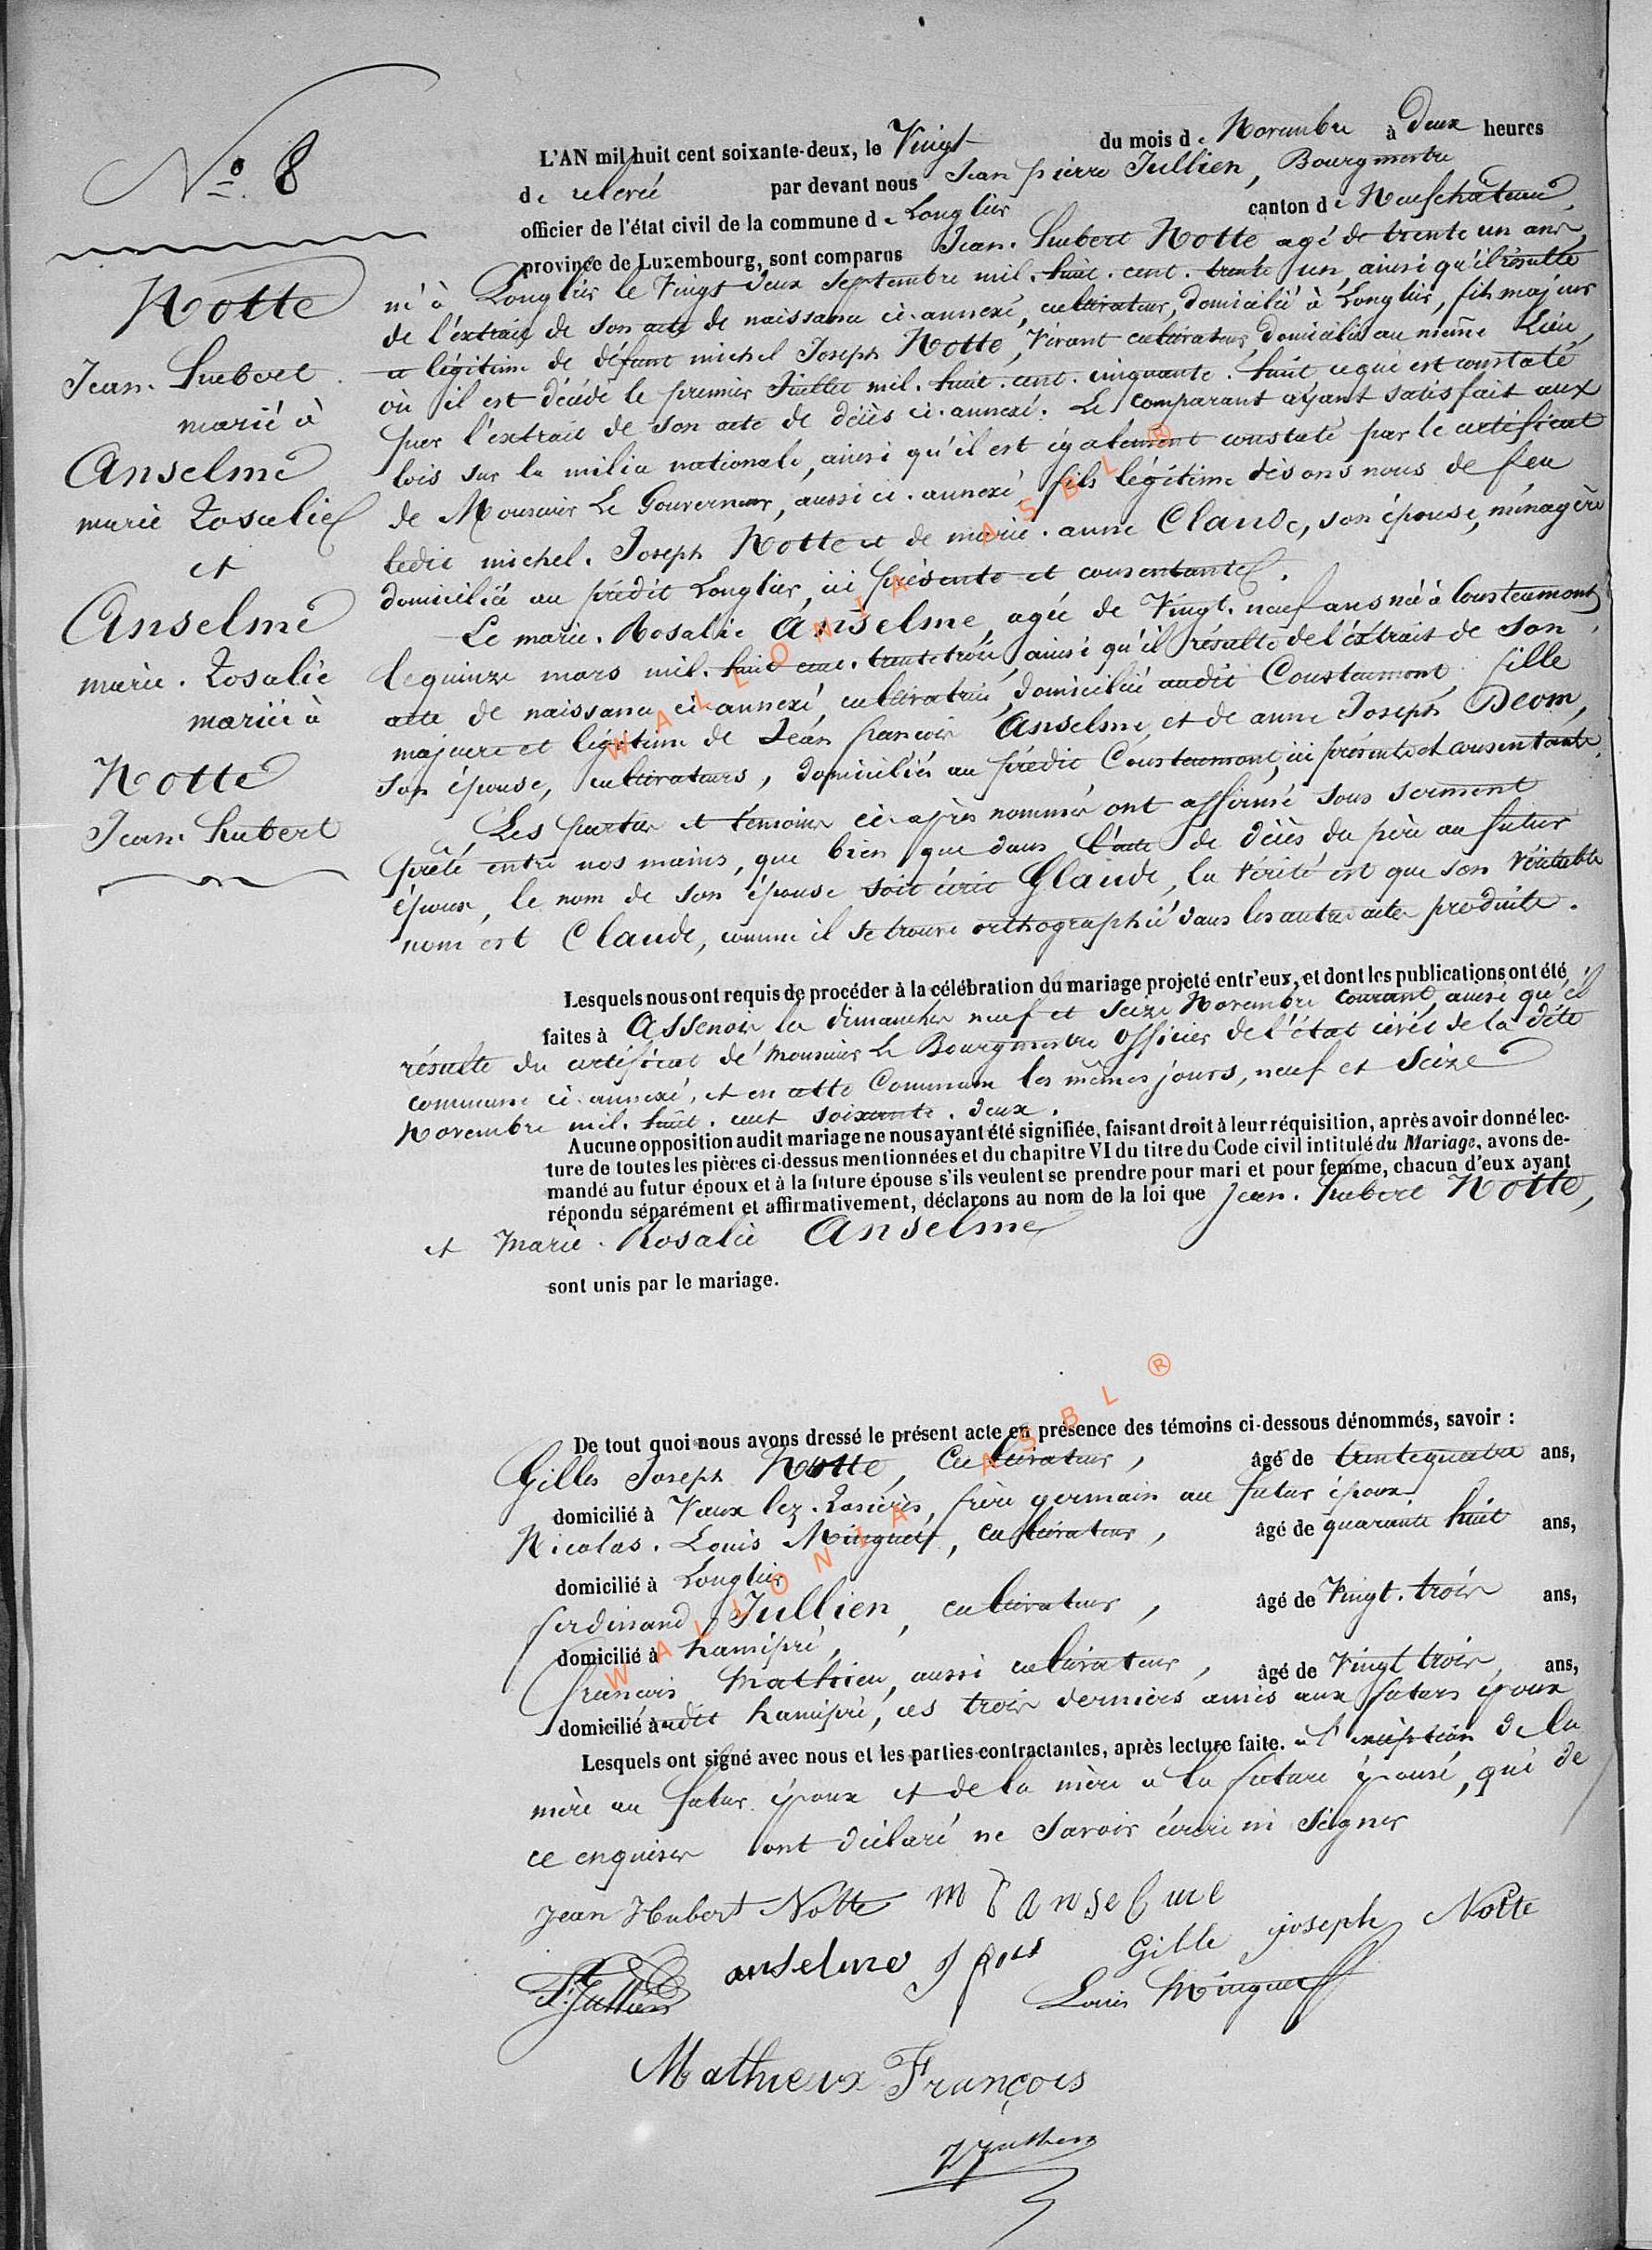 Nº 8
Notte
Jean. Hubert
marié à
Anselme
marie Rosalie
et
Anselme
marie. Rosalie
mariée à
Notte
Jean. hubert
L'AN mil huit cent soixante-deux, le Vingt du mois de Novembre à deux heures
de relevée par devant nous Jean pierre Jullien, Bourgmestre
officier de l'état civil de la commune de Longlier canton de Neufchateau,
province de Luxembourg, sont comparus Jean. Hubert Notte agé de trente un ans,
né à Longlier le Vingt deux septembre mil. huit. cent. trente un, ainsi qu'il résulte
de l'extrait de son acte de naissance ci-annexé, cultivateur, domicilié à Longlier, fils majeur
et légitime de défunt michel Joseph Notte, Vivant cultivateur, domicilié au même Lieu,
où il est décédé le premier Juillet mil. huit. cent. cinquante. huit ce qui est constaté
par l'extrait de son acte de décès ci-annexé. Le comparant ayant satisfait aux
lois sur la milice nationale, ainsi qu'il est également constaté par le certificat
de Monsieur Le Gouverneur, aussi ci-annexé, fils légitime disons nous de feu
ledit michel. Joseph Notte et de marie. anne Claude, son épouse, ménagère
domiciliée au prédit Longlier, ici présente et consentante.
Et marie. Rosalie Anselme, agée de Vingt. neuf ans née à Cousteumont,
le quinze mars mil. huit cent. trente trois, ainsi qu'il résulte de l'extrait de son
acte de naissance ci-annexé, cultivatrice, domiciliée audit Cousteumont, fille
majeure et légitime de Jean françois Anselme, et de anne Joseph Deom,
son épouse, cultivateurs, domiciliés au prédit Cousteumont, ici présents et consentants.
Les parties et témoins ci-après nommés ont affirmé sous serment
prêté entre nos mains, que bien que dans l'acte de décès du père au futur
époux, le nom de son épouse soit écrit Glaude, la vérité est que son véritable
nom est Claude, comme il se trouve orthographié dans les autres actes produits.
Lesquels nous ont requis de procéder à la célébration du mariage projeté entr'eux, et dont les publications ont été
faites à Assenois les dimanches neuf et seize Novembre courant, ainsi qu'il
résulte du certificat de Monsieur Le Bourgmestre Officier de l'état civil de la dite
commune ci-annexé, et en cette Commune les mêmes jours, neuf et Seize
Novembre mil. huit. cent soixante. deux.
Aucune opposition audit mariage ne nous ayant été signifiée, faisant droit à leur réquisition, après avoir donné lec-
ture de toutes les pièces ci-dessus mentionnées et du chapitre VI du titre du Code civil intitulé du Mariage, avons de-
mandé au futur époux et à la future épouse s'ils veulent se prendre pour mari et pour femme, chacun d'eux ayant
répondu séparément et affirmativement, déclarons au nom de la loi que Jean. Hubert Notte,
et Marie. Rosalie Anselme
sont unis par le mariage.
De tout quoi nous avons dressé le présent acte en présence des témoins ci-dessous dénommés, savoir :
Gilles Joseph Notte, Cultivateur, âgé de trente quatre ans,
domicilié à Vaux lez. Rosières, frère germain au futur époux
Nicolas. Louis Minguet, cultivateur, âgé de quarante huit ans,
domicilié à Longlier
ferdinand Jullien, cultivateur, âgé de Vingt. trois ans,
domicilié à hamipré,
françois Mathieu, aussi cultivateur, âgé de Vingt trois, ans,
domicilié audit hamipré, ces trois derniers amis aux futurs époux
Lesquels ont signé avec nous et les parties contractantes, après lecture faite. à l'exception de la
mère au futur époux et de la mère a la future épouse, qui de
ce enquises ont déclaré ne Savoir écrire ni Signer
Jean Hubert Notte M R anselme
anselme J fois Gille joseph Notte
F. Jullien Louis Minguet
Mathieux François
Jullien
WALLONIA ASBL ®
WALLONIA ASBL ®